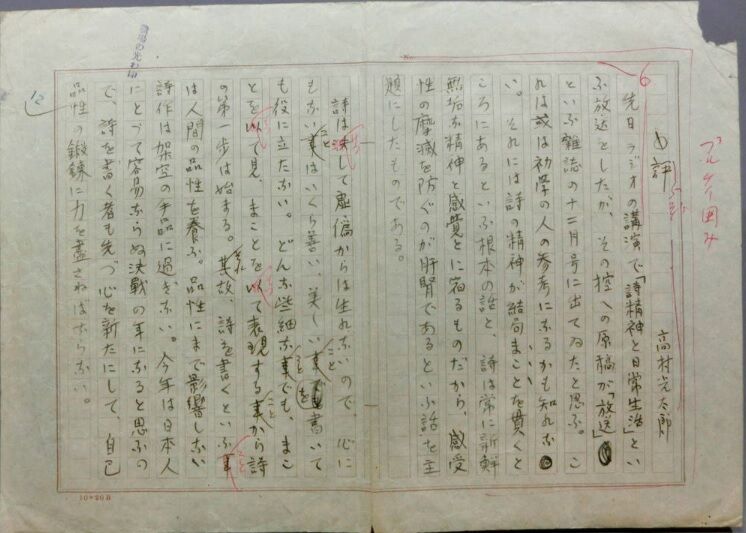 小評
高村光太郎
先日ラジオの講演で「詩精神と日常生活」とい
ふ放送をしたが、その控への原稿が「放送」
といふ雑誌の十二月号に出てゐたと思ふ。こ
れは或は初学の人の参考になるかも知れな
い。それには詩の精神が結局まことを貫くと
ころにあるといふ根本の話と、詩は常に新鮮
無垢な精神と感覚とに宿るものだから、感受
性の摩滅を防ぐのが肝腎であるといふ話を主
題にしたものである。
詩は決して虚偽からは生れないので、心に
もない事はいくら善い、美しい事を書いて
も役に立たない。どんな些細な事でも、まこ
とを以て見、まことを以て表現する事から詩
の第一歩は始まる。其故、詩を書くといふ事
は人間の品性を養ふ。品性にまで影響しない
詩作は架空の手品に過ぎない。今年は日本人
にとつて容易ならぬ決戦の年になると思ふの
で、詩を書く者も先づ心を新たにして、自己
品性の鍛錬に力を盡さねばならない。
6
12
10*20B